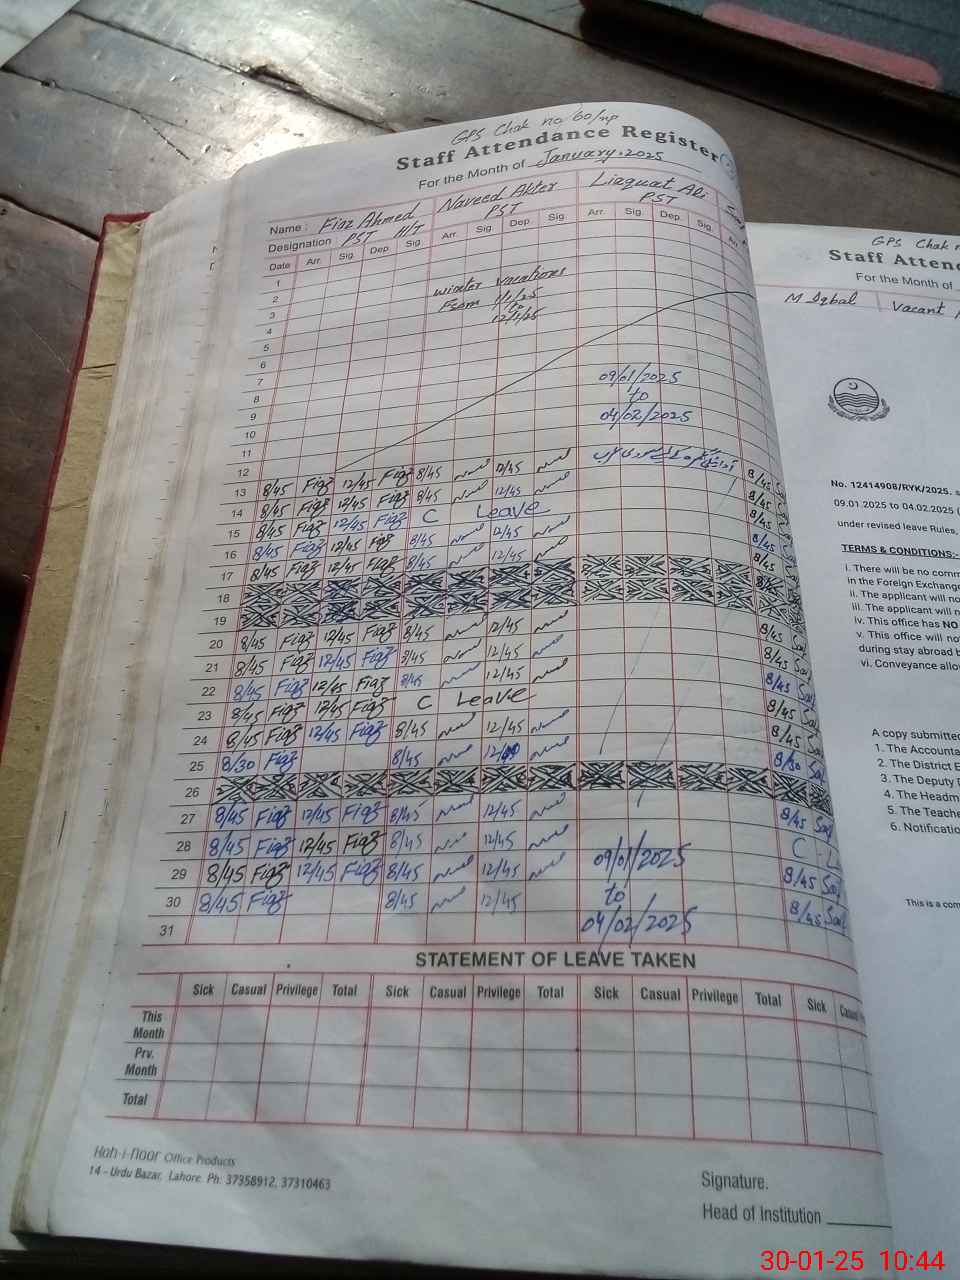 GPS Chak no 60/np
Staff Attendance Register
For the Month of January.2025
Name : Fiaz Ahmed Naveed Akter Liaquat Ali
Designation PST H/T PST PST
Date Arr. Sig. Dep. Sig. Arr. Sig. Dep. Sig. Arr. Sig. Dep. Sig. Arr.
1
2 winter vacations
3 From 1/1/25
to
4 12/1/25
5
6
7 09/01/2025
8 to
9 04/02/2025
10
11
12
13 8/45 Fiaz 12/45 Fiaz 8/45 12/45 8/45
14 8/45 Fiaz 12/45 Fiaz 8/45 12/45 8/45
15 8/45 Fiaz 12/45 Fiaz C Leave 8/45
16 8/45 Fiaz 12/45 Fiaz 8/45 12/45 8/45
17 8/45 Fiaz 12/45 Fiaz 8/45 12/45 8/45
18
19
20 8/45 Fiaz 12/45 Fiaz 8/45 12/45 8/45
21 8/45 Fiaz 12/45 Fiaz 8/45 12/45 8/45
22 8/45 Fiaz 12/45 Fiaz 8/45 12/45 8/45
23 8/45 Fiaz 12/45 Fiaz C Leave 8/45
24 8/45 Fiaz 12/45 Fiaz 8/45 12/45 8/45
25 8/30 Fiaz 8/45 8/30
26
27 8/45 Fiaz 12/45 Fiaz 8/45 12/45 8/45
28 8/45 Fiaz 12/45 Fiaz 8/45 12/45 C L
29 8/45 Fiaz 12/45 Fiaz 8/45 12/45 09/01/2025 8/45
30 8/45 Fiaz 8/45 12/45 to 8/45
31 04/02/2025
STATEMENT OF LEAVE TAKEN
Sick Casual Privilege Total Sick Casual Privilege Total Sick Casual Privilege Total Sick
This Month
Prv. Month
Total
Koh-i-noor Office Products
14 - Urdu Bazar, Lahore. Ph: 37358912, 37310463
Signature.
Head of Institution
GPS Chak
Staff Atten
For the Month of
M Iqbal Vacant
No. 12414908/RYK/2025.
09.01.2025 to 04.02.2025 (
under revised leave Rules,
TERMS & CONDITIONS:-
i. There will be no comm
in the Foreign Exchange
ii. The applicant will no
iii. The applicant will n
iv. This office has NO
v. This office will no
during stay abroad b
vi. Conveyance allo
A copy submitted
1. The Accounta
2. The District E
3. The Deputy D
4. The Headm
5. The Teache
6. Notificatio
This is a com
30-01-25 10:44